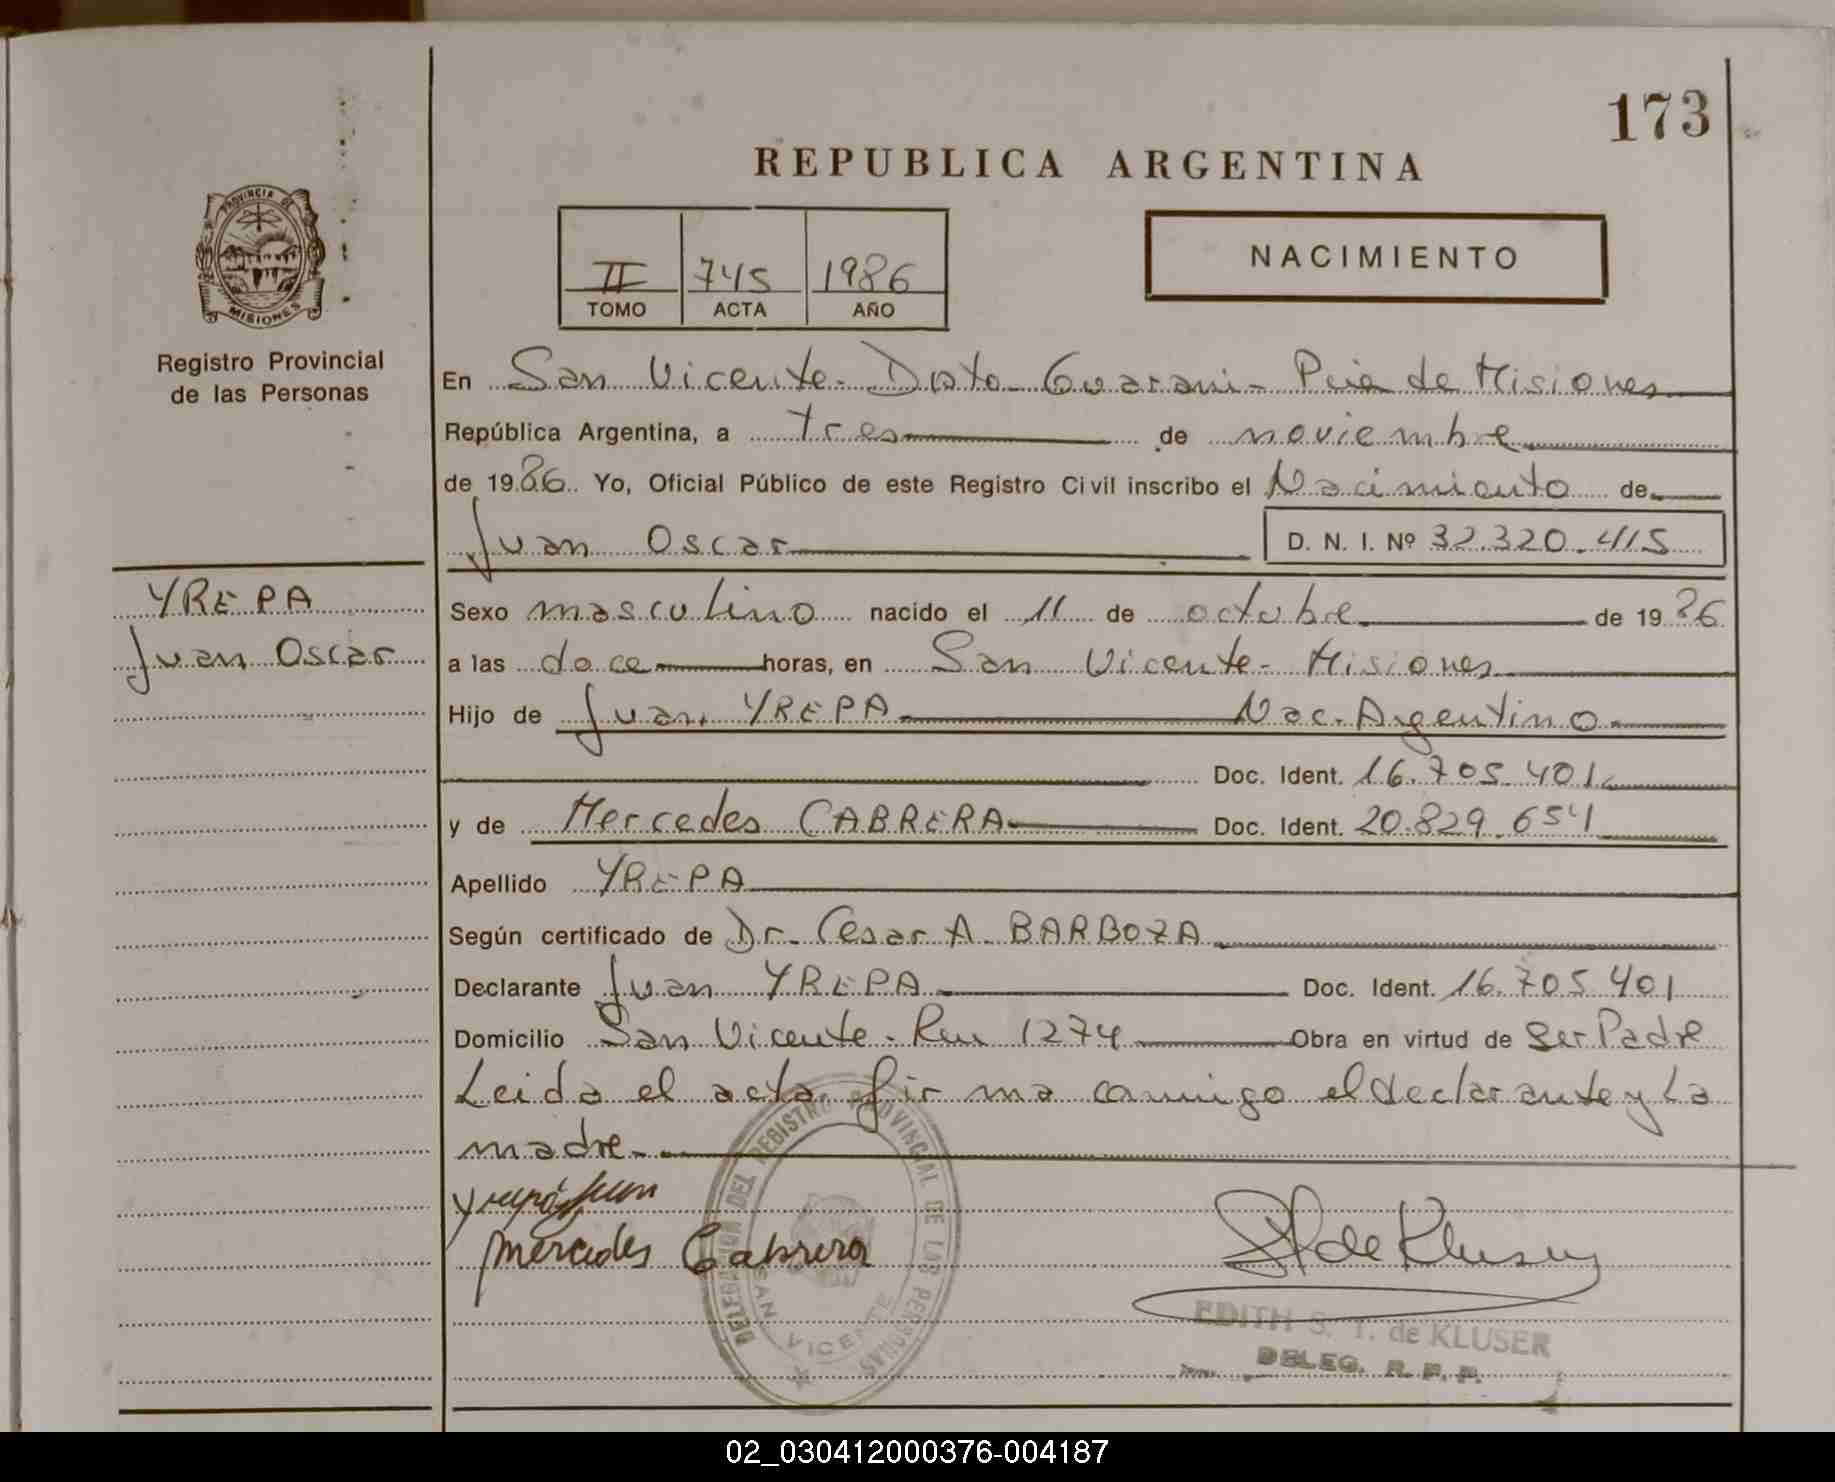 173
REPUBLICA ARGENTINA
PROVINCIA DE
MISIONES
Registro Provincial
de las Personas
II 745 1986
TOMO ACTA AÑO
NACIMIENTO
En San Vicente - Dpto - Guarani - Pcia de Misiones
República Argentina, a tres de noviembre
de 1986. Yo, Oficial Público de este Registro Civil inscribo el Nacimiento de
Juan Oscar D. N. I. Nº 32.320.415
YREPA
Juan Oscar
Sexo masculino nacido el 11 de octubre de 1986
a las doce horas, en San Vicente - Misiones
Hijo de Juan YREPA Nac. Argentino
Doc. Ident. 16.705.401
y de Mercedes CABRERA Doc. Ident. 20.829.654
Apellido YREPA
Según certificado de Dr. Cesar A. BARBOZA
Declarante Juan YREPA Doc. Ident. 16.705.401
Domicilio San Vicente - Km 1274 Obra en virtud de Ser Padre
Leida el acta, firma conmigo el declarante y La
madre.
Yrepa Juan
Mercedes Cabrera
DELEGACION DEL REGISTRO PROVINCIAL DE LAS PERSONAS
SAN VICENTE
de Kluser
EDITH S. T. de KLUSER
DELEG. R. P. P.
02_030412000376-004187